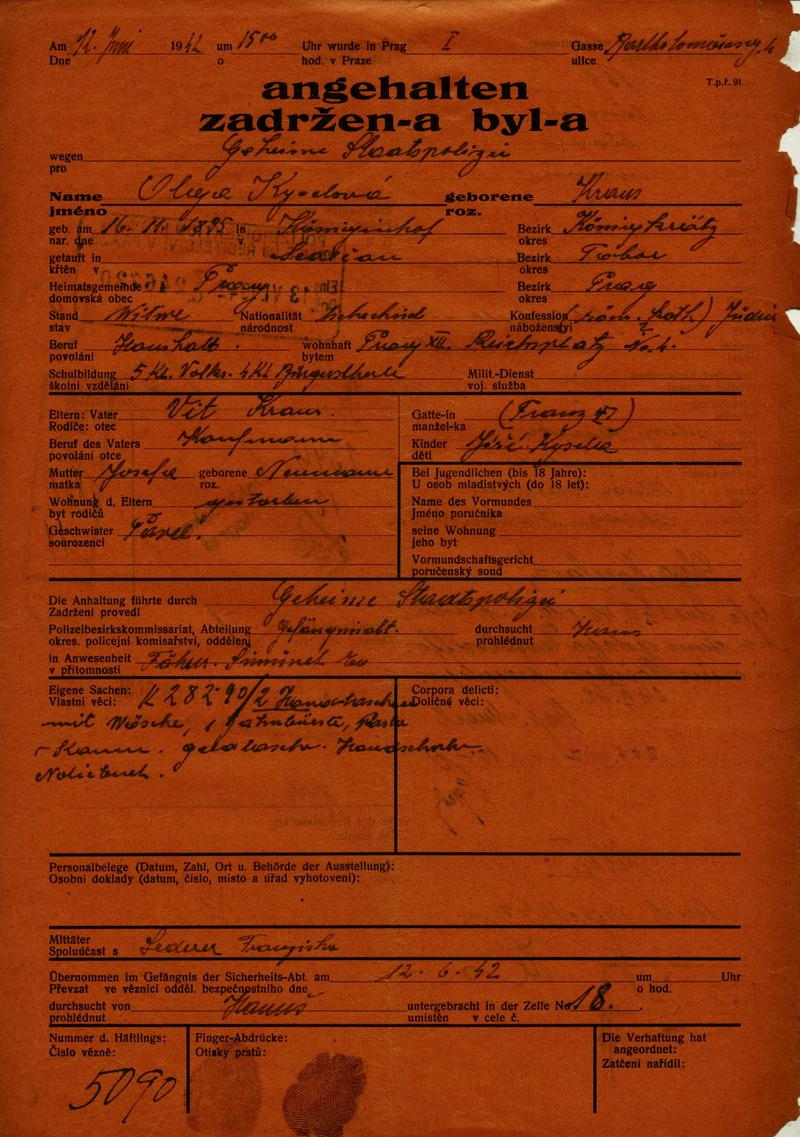 Am 12. Juni 1942 um 15 00 Uhr wurde in Prag I Gasse
Dne o hod. v Praze ulice
T.p.ř. 91
angehalten
zadržen-a byl-a
wegen Geheime Staatspolizei
pro
Name Olga Kyselová geborene Kraus
jméno roz.
geb. am 16. 11. 1895 in Königinhof Bezirk
nar. dne v okres
getauft in Bezirk Tábor
křtěn v okres
Heimatsgemeinde Prag Bezirk Prag
domovská obec okres
Stand Witwe Nationalität Konfession (röm. kath.) Jüdin
stav národnost náboženství
Beruf Haushalt. wohnhaft Prag XII. Reichsplatz No. 4.
povolání bytem
Schulbildung 5 Kl. Volks. 4 Kl. Milit.-Dienst
školní vzdělání voj. služba
Eltern: Vater Vit Kraus. Gatte-in (Franz )
Rodiče: otec manžel-ka
Beruf des Vaters Kaufmann Kinder Jiří Kysela
povolání otce děti
Mutter Josefa geborene Neumann Bei Jugendlichen (bis 18 Jahre):
matka roz. U osob mladistvých (do 18 let):
Wohnung d. Eltern gestorben Name des Vormundes
byt rodičů Jméno poručníka
Geschwister Pavel. seine Wohnung
sourozenci jeho byt
Vormundschaftsgericht
poručenský soud
Die Anhaltung führte durch Geheime Staatspolizei
Zadržení provedl
Polizeibezirkskommissariat, Abteilung durchsucht
okres. policejní komisařství, oddělení prohlédnut
in Anwesenheit
v přítomnosti
Eigene Sachen: K 282·90/2 Corpora delicti:
Vlastní věci: Doličné věci:
mit Wäsche, 1
Kamm.
Notizbuch.
Personalbelege (Datum, Zahl, Ort u. Behörde der Ausstellung):
Osobní doklady (datum, číslo, místo a úřad vyhotovení):
Mittäter
Spoluúčast s Lederer Franziska
Übernommen im Gefängnis der Sicherheits-Abt. am 12. 6. 42 um Uhr
Převzat ve věznici odděl. bezpečnostního dne o hod.
durchsucht von untergebracht in der Zelle No 18.
prohlédnut umístěn v cele č.
Nummer d. Häftlings: Finger-Abdrücke: Die Verhaftung hat
Číslo vězně: Otisky prstů: angeordnet:
Zatčení nařídil:
5090